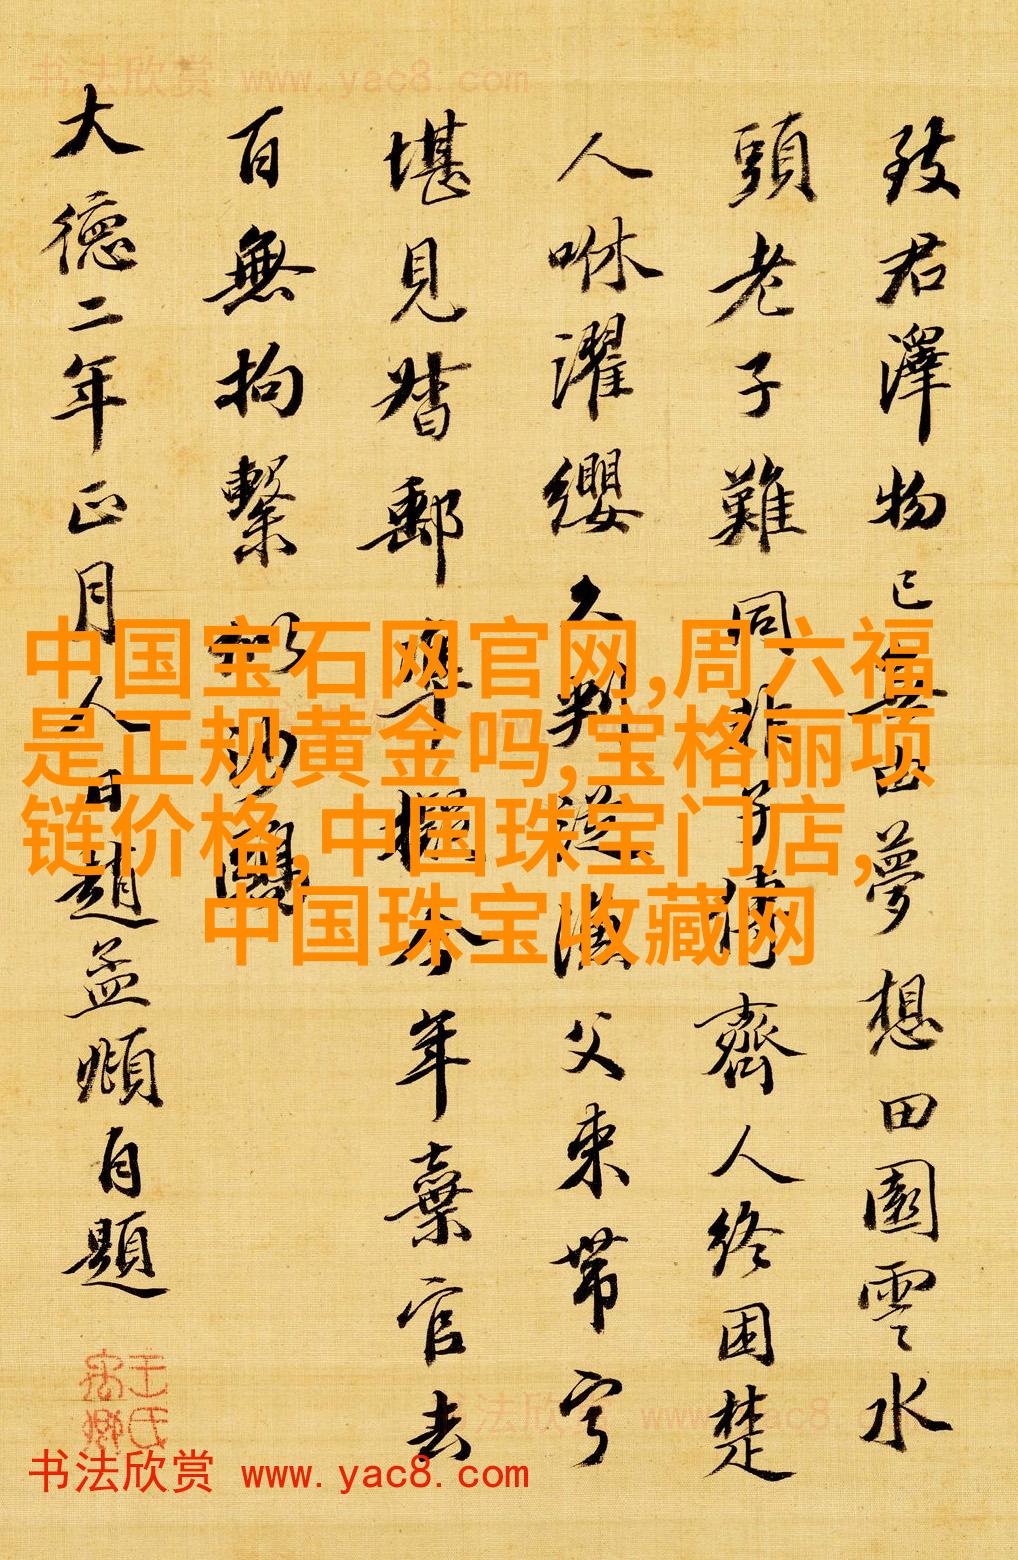 书法欣赏 www.yac8.com
致君澤物已無由夢想田園雲水
頭老子難同非子傳齊人終困楚
人咻濯纓久判從漁父束帶寧
堪見督郵準擬今年棄官去
百無拘繫似沙鷗
大德二年正月人日趙孟頫自題
中国宝石网官网,周六福
是正规黄金吗,宝格丽项
链价格,中国珠宝门店,
中国珠宝收藏网
书法欣赏 www.yac8.com
书法欣赏 www.yac8.com